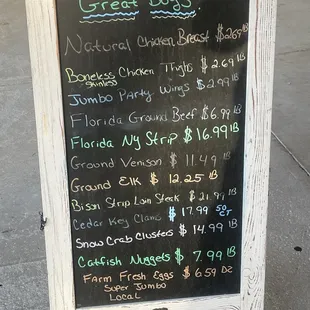 Great Buys
Natural Chicken Breast $2.69 LB
Boneless Chicken Thighs $2.69 LB
skinless
Jumbo Party Wings $2.99 LB
Florida Ground Beef $6.99 LB
Florida Ny Strip $16.99 LB
Ground Venison $11.49 LB
Ground Elk $12.25 LB
Bison Strip Loin Steak $21.99 LB
Cedar Key Clams $17.99 50 CT
Snow Crab Clusters $14.99 LB
Catfish Nuggets $7.99 LB
Farm Fresh Eggs $6.59 DZ
Super Jumbo
Local